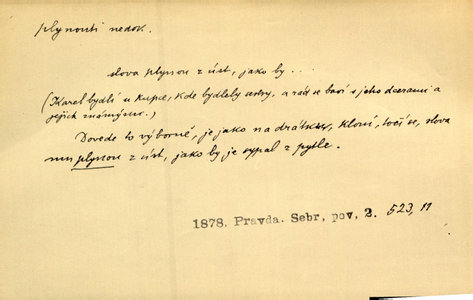 plynouti nedok.
slova plynou z úst, jako by . . .
(Karel bydlí u kupce, kde bydlely sestry, a rád se baví s jeho dcerami a
jejich známými.)
Dovede to výborně, je jako na drátku, kloní, točí se, slova
mu plynou z úst, jako by je sypal z pytle.
1878. Pravda. Sebr. pov. 2. 523, 11